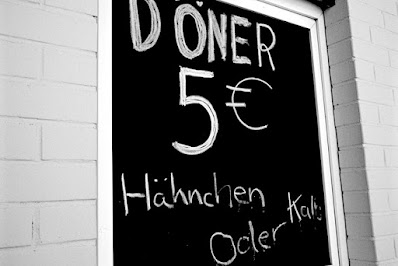 DÖNER
5 €
Hähnchen
oder Kalb